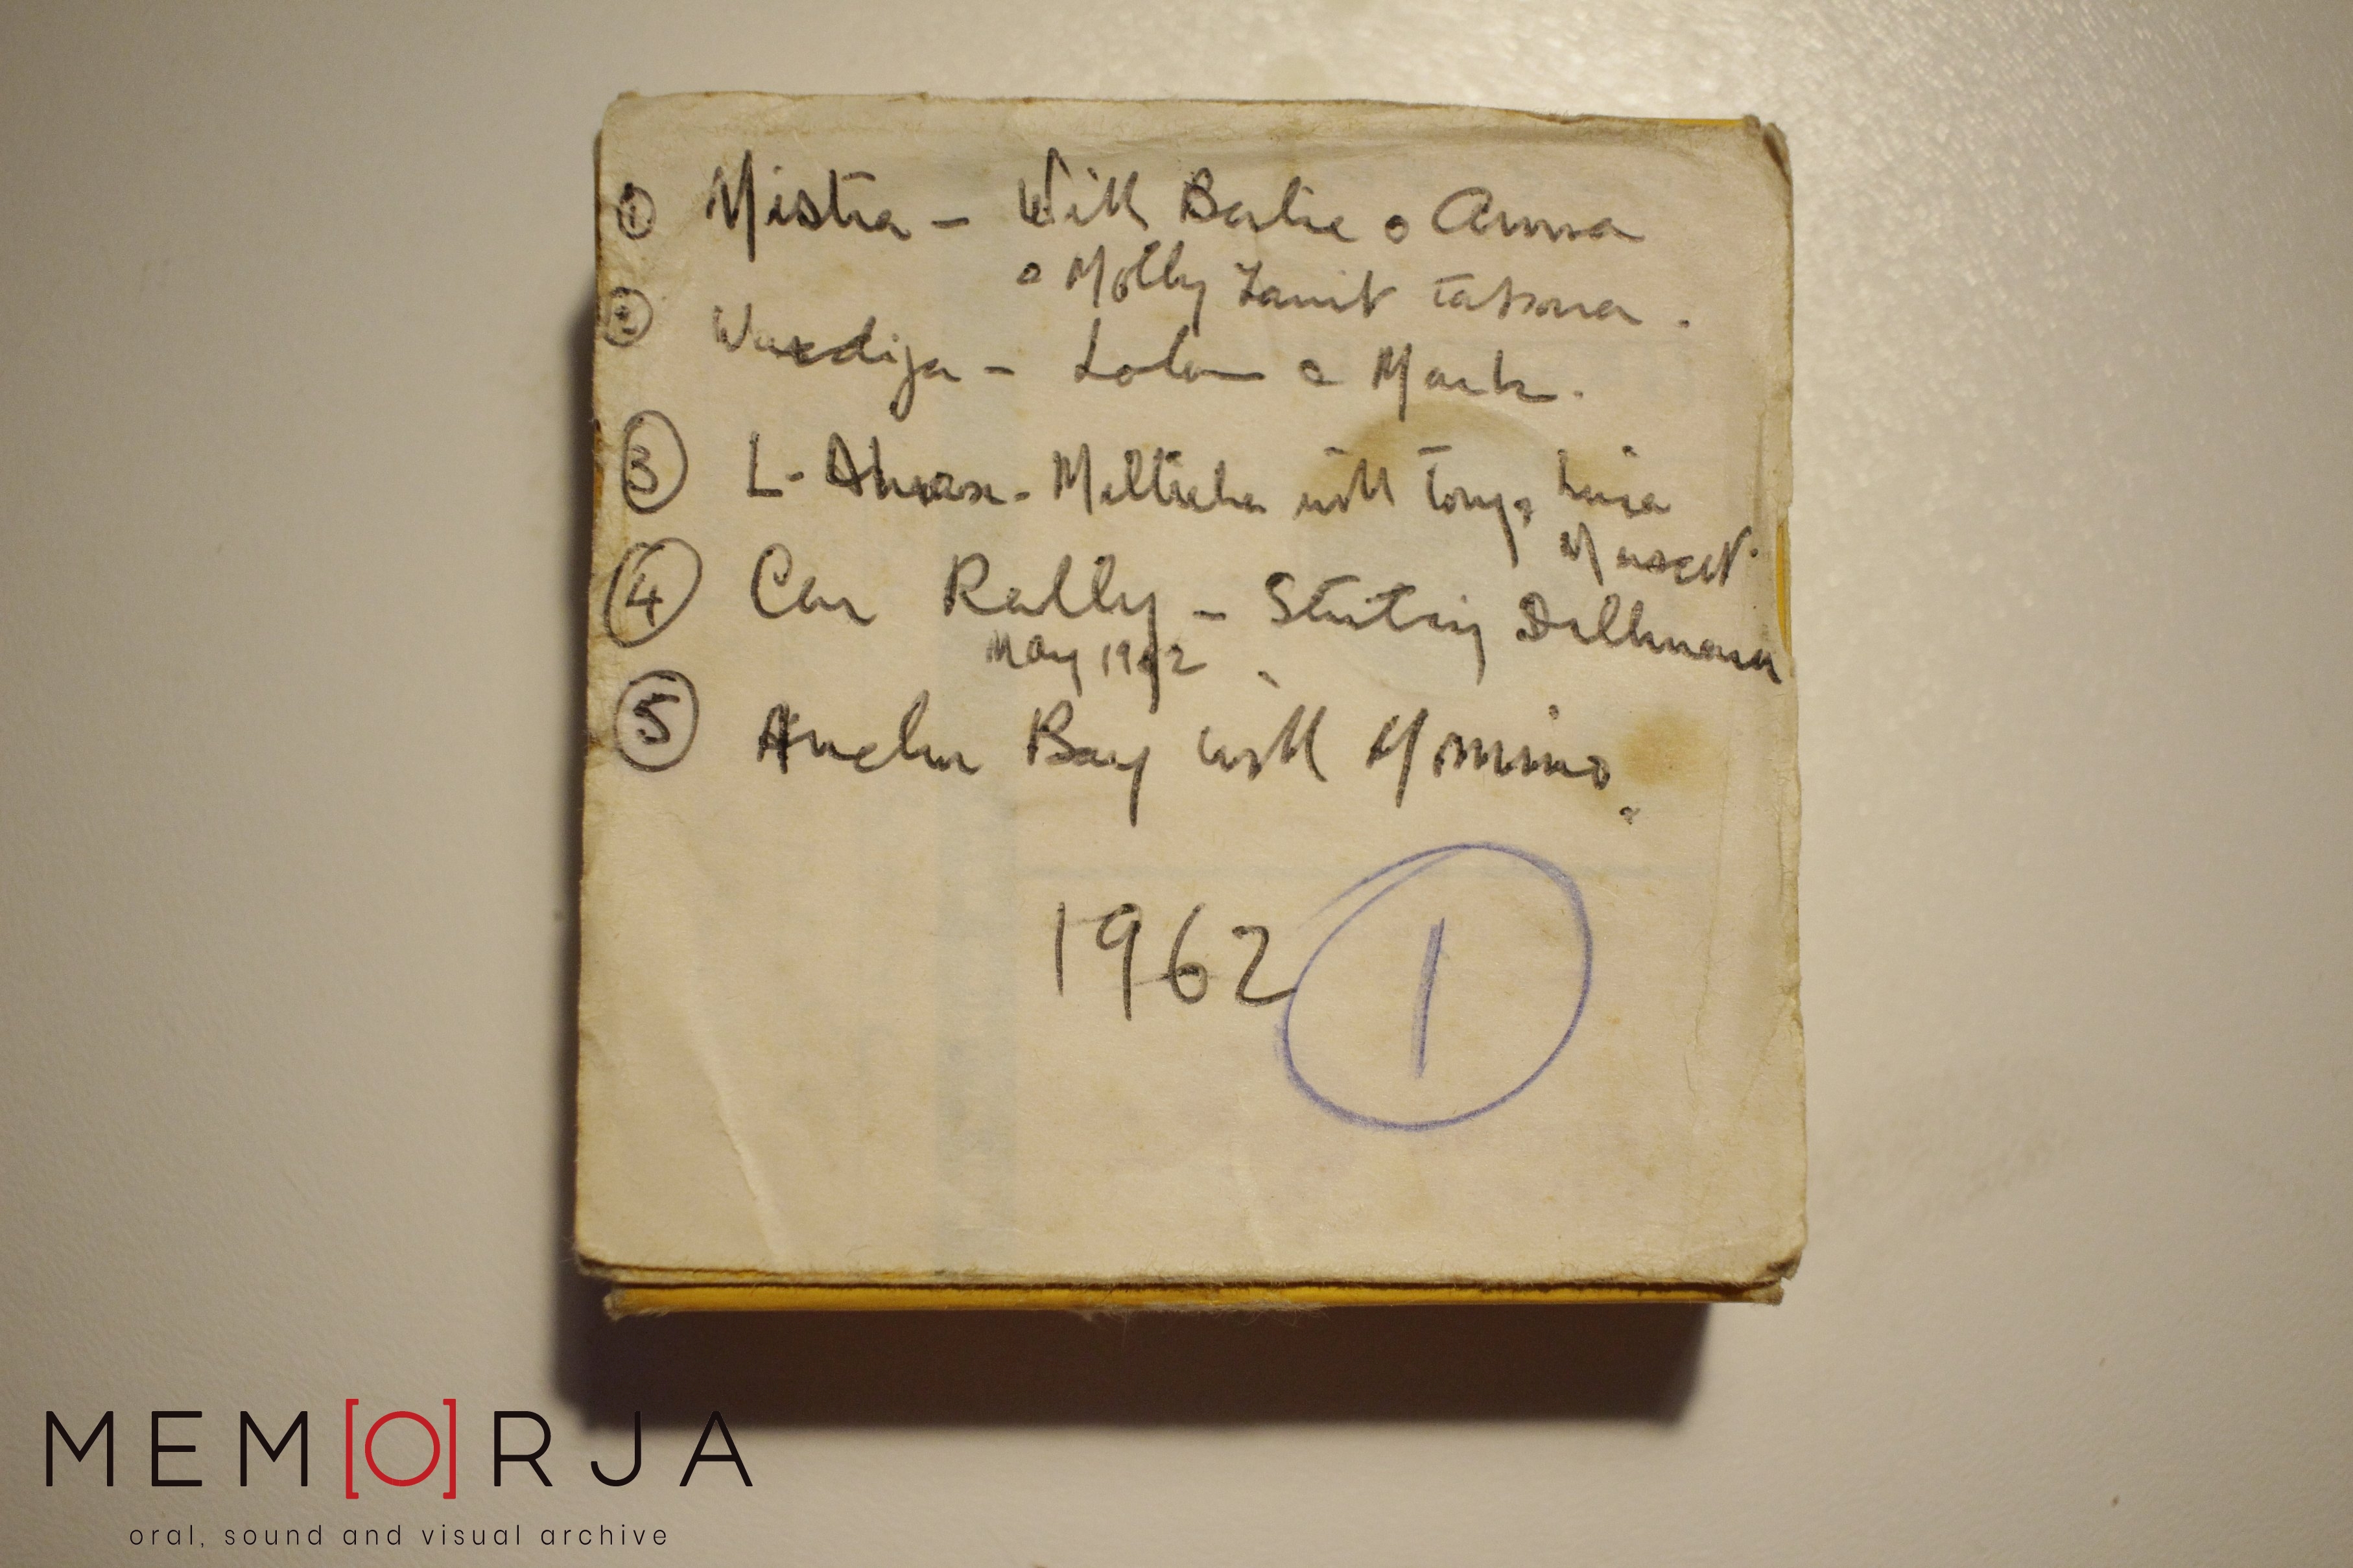 ① Mistra - With Berlie & Anna
& Molly Zammit Tabona.
② Wardija - Lola & Mark.
③ L-Ahrax - Mellieha with Tony & Luisa
Muscat.
④ Car Rally - Starting Dellimara
May 1962
⑤ Anchor Bay with Mommino.
1962 ①
MEM[O]RJA
oral, sound and visual archive